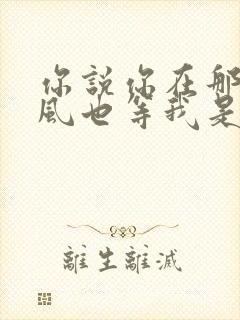 你說你在那
風也等我是
離生離滅